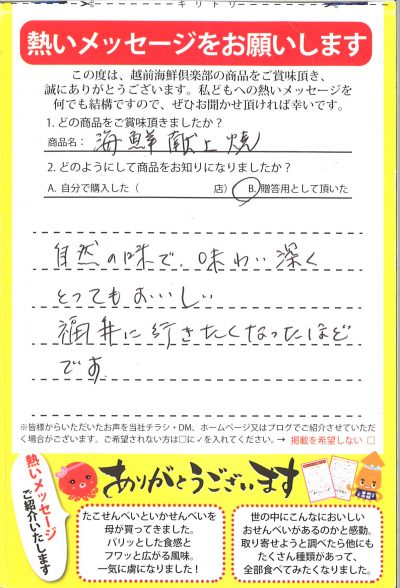 キリトリ
熱いメッセージをお願いします
この度は、越前海鮮倶楽部の商品をご賞味頂き、
誠にありがとうございます。私どもへの熱いメッセージを
何でも結構ですので、ぜひお聞かせ頂ければ幸いです。
1. どの商品をご賞味頂きましたか？
商品名： 海鮮献上焼
2. どのようにして商品をお知りになりましたか？
A. 自分で購入した（ 店） B. 贈答用として頂いた
自然の味で、味わい深く
とってもおいしい
福井に行きたくなったほど
です
※皆様からいただいたお声を当社チラシ・DM、ホームページ又はブログでご紹介させていただ
く場合がございます。ご希望されない方は□に✓を入れてください。→ 掲載を希望しない □
熱いメッセージ
ご紹介いたします
ありがとうございます
たこせんべいといかせんべいを
母が買ってきました。
パリッとした食感と
フワッと広がる風味。
一気に虜になりました！
世の中にこんなにおいしい
おせんべいがあるのかと感動。
取り寄せようと調べたら他にも
たくさん種類があって、
全部食べてみたくなりました。